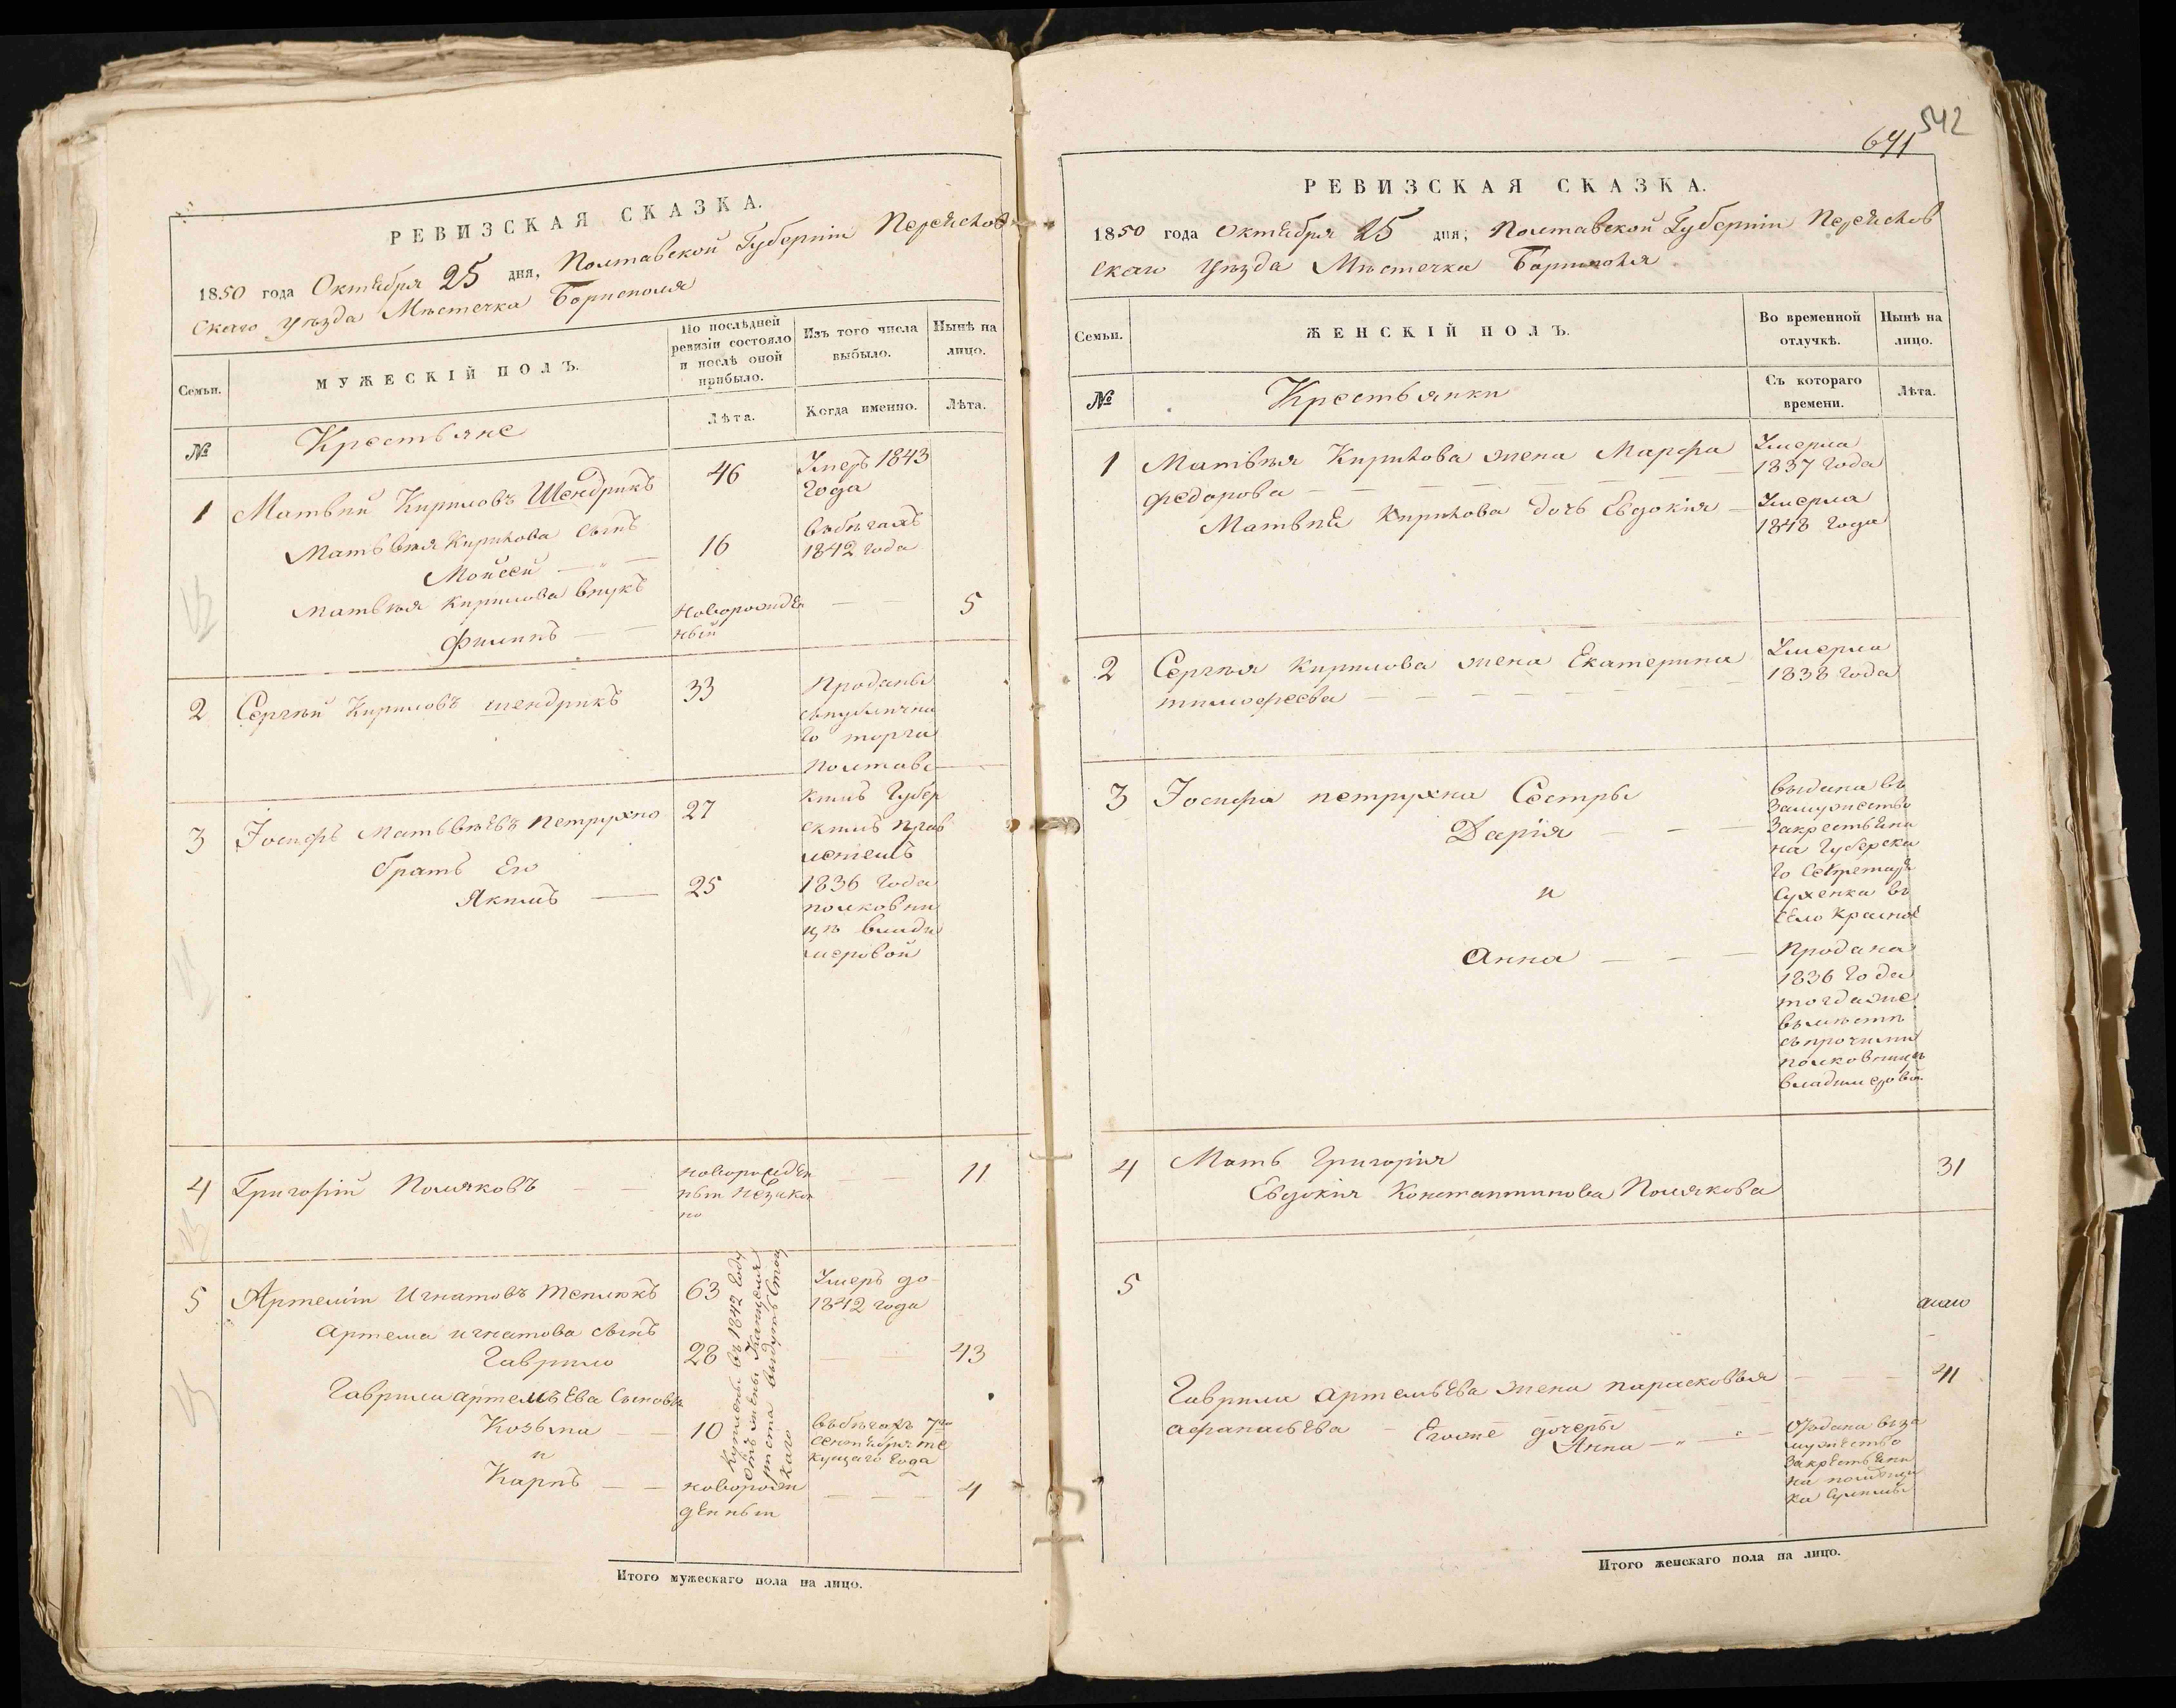 РЕВИЗСКАЯ СКАЗКА.
1850 года Октября 25 дня, Полтавской Губерніи Переяслов
скаго уѣзда Мѣстечка Борисполя
Семьи.
МУЖЕСКІЙ ПОЛЪ.
По послѣдней
ревизіи состояло
и послѣ оной
прибыло.
Изъ того числа
выбыло.
Нынѣ на
лицо.
№
Крестьяне
Лѣта.
Когда именно.
Лѣта.
1 Матвѣй Кириловъ Шендрикъ 46 Умеръ 1843
года
Матвѣя Кирилова сынъ
Мойсей 16 въбѣгахъ
1842 года
Матвѣя Кирилова внукъ
Филипъ новорожде
ный 5
2 Сергѣй Кириловъ шендрикъ 33 Проданы
съпублична
го торга
Полтавс
кимъ Губер
скимъ прав
леніемъ
1836 года
полковни
цѣ влади
меровой
3 Іосифъ Матьвѣевъ петрухно 27
братъ Его
Якимъ 25
4 Григорій Поляковъ новорожден
ный незакон
но 11
5 Артемій Игнатовъ теплюкъ 63 Умеръ до
1842 года
Артема игнатова сынъ
Гаврило 28 43
Гаврила артемьева сыновья
Козьма 10 въбѣгахъ 7го
сентября те
кущаго года
и
Карпъ новорож
денный 4
Куплены въ 1842 году
отъ жены Канцеля
риста
каго
Итого мужескаго пола на лицо.
542
641
РЕВИЗСКАЯ СКАЗКА.
1850 года Октября 25 дня, Полтавской Губерніи Переяслов
скаго уѣзда Мѣстечка Борисполя
Семьи.
ЖЕНСКІЙ ПОЛЪ.
Во временной
отлучкѣ.
Нынѣ на
лицо.
№
Крестьянки
Съ котораго
времени.
Лѣта.
1 Матвѣя Кирилова жена Марфа
федорова Умерла
1837 года
Матвѣя Кирилова дочь Евдокія Умерла
1848 года
2 Сергѣя Кирилова жена Екатерина
тимофеева Умерла
1838 года
3 Іосифа петрухна Сестры
Дарія
выдана въ
замужество
закрестьяни
на Губерска
го Секретаря
Сухенка въ
село красное
и
Анна
Продана
1836 года
тогдаже
вьмѣстѣ
съпрочими
полковницѣ
владимеровой
4 Мать Григорія
Евдокія Константинова Полякова 31
5
Гаврила артемьева жена парасковья
афанасьева 41
Егоже дочеры
Анна
Отдана въза
мужество
закрестьяни
на помѣщи
ка Сулимы
Итого женскаго пола на лицо.